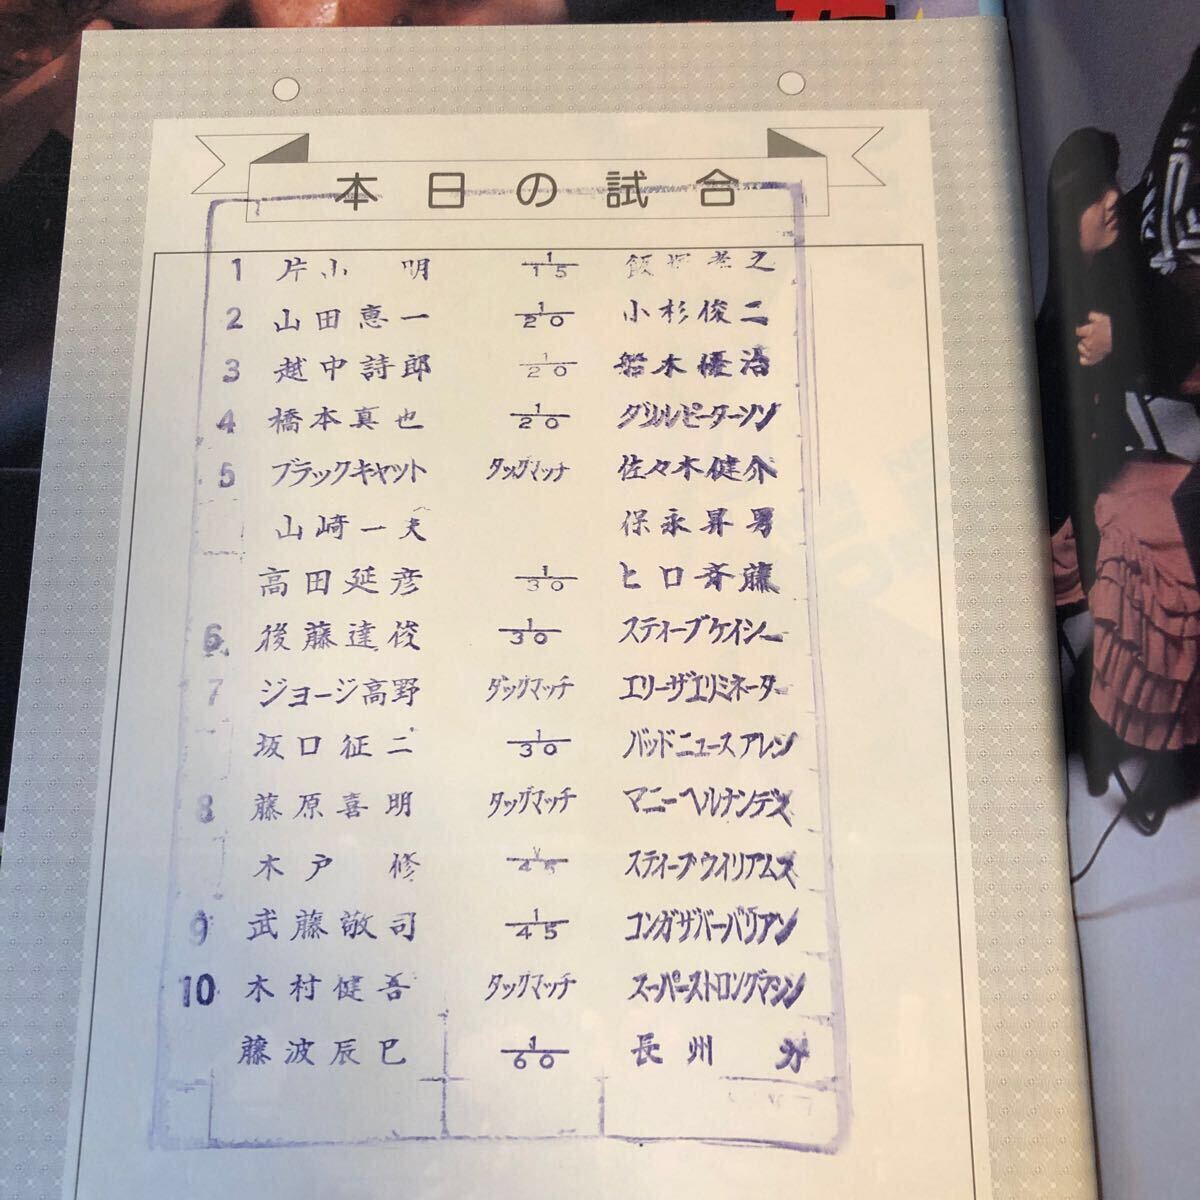 本日の試合
1 片山 明 1/15 飯塚孝之
2 山田恵一 1/20 小杉俊二
3 越中詩郎 1/20 船木優治
4 橋本真也 1/20 グリルピーターソン
5 ブラックキャット タッグマッチ 佐々木健介
山崎一夫 保永昇男
高田延彦 1/30 ヒロ斉藤
6 後藤達俊 1/30 スティーブケイシー
7 ジョージ高野 タッグマッチ エリーザエリミネーター
坂口征二 1/30 バッドニュースアレン
8 藤原喜明 タッグマッチ マニーヘルナンデス
木戸 修 1/45 スティーブウイリアムス
9 武藤敬司 1/45 コンガザバーバリアン
10 木村健吾 タッグマッチ スーパーストロングマシン
藤波辰巳 1/60 長州 力